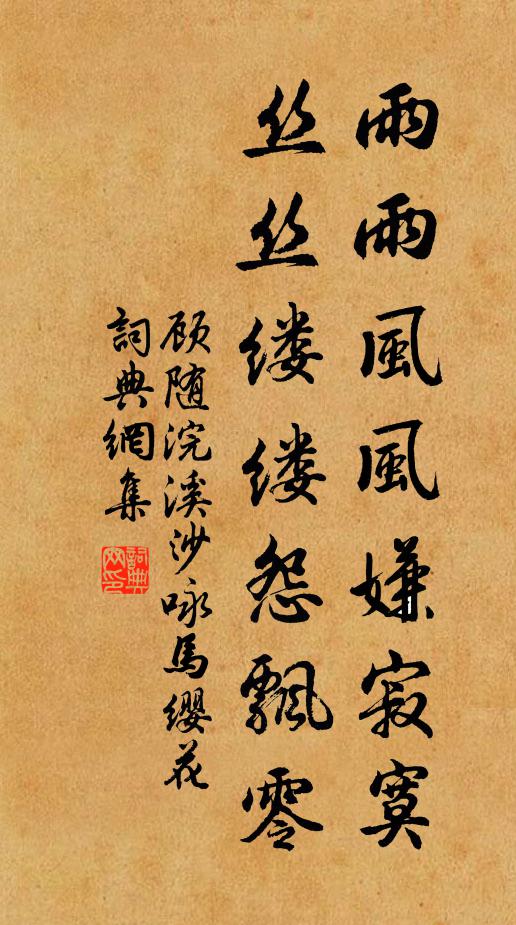 雨雨風風嫌寂寞
丝丝缕缕怨飄零
顾随浣溪沙咏馬缨花
詞典網集
詞典網印